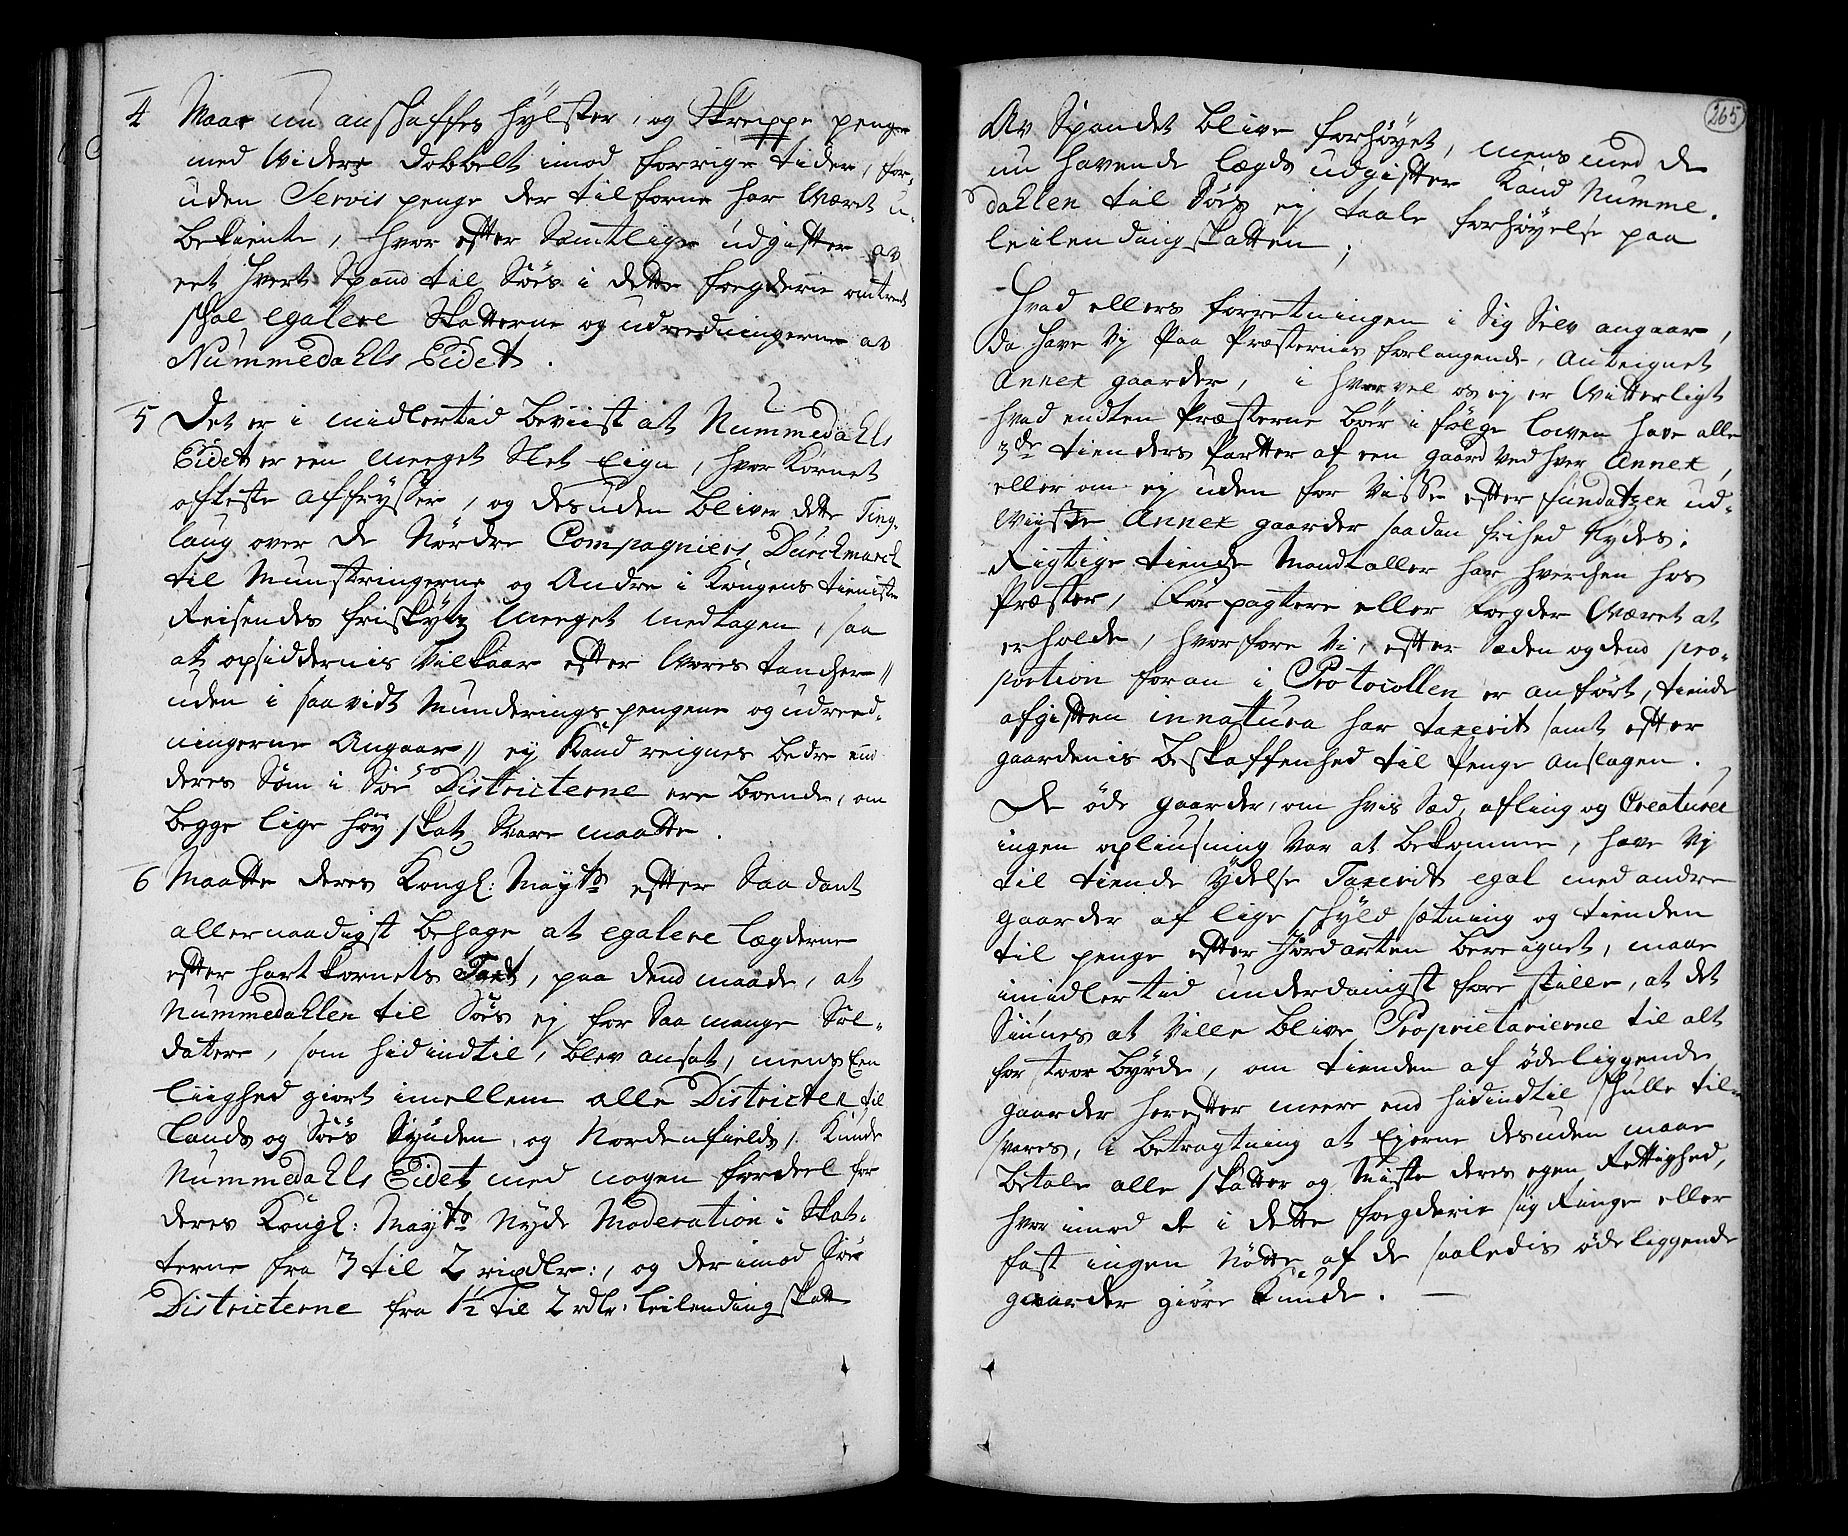 4 Maae nu anschaffes hylster, og Skreppe penge
med Videre dobbelt imod forrige tider, for-
uden Servis penge der tilforne har Været u-
bekiente, hvor efter Samtlige udgifter av
eet hvert Spand til Söes i dette fogderie omtrent
schal egalere Skatterne og udreedningerne av
Nummedahls Eidet.
5 Det er i midlertid beviist at Nummedahls
Eidet er een meeget Slet Eign, hvor Kornet
ofteste affrysser, og desuden bliver dette Ting-
laug over de Nordre Compagniers Durchmarch
til Munstringerne og Andre i Kongens tieniste
Reisendes friskytz meeget medtagen, saa
at opsiddernis Vilkaar efter Vores tancher //
uden i saavidt Munderings pengene og udreed-
ningerne Angaar // ej Kand reignes bedre end
deres Som i Söe Districterne ere boende, om
begge lige höy skat Svare maatte.
6 Maatte deres Kongl: Mayts efter Saadant
allernaadigst behage at egalere Lægderne
efter hartkornets Taxt, paa dend maade, at
Nummedahlen til Söes ej for Saa mange Sol-
datere, som hidindtil, blev ansat, mens Een
liighed giort imellem alle Districter til
Lands og Söes Synden, og Nordenfields, Kunde
Nummedahls Eidet med nogen fordeel for
deres Kongl: Mayts Nyde Moderation i Skat-
terne fra 3 til 2 rixdlr:, og derimod Söe
Districterne fra 1½ til 2 rdlr: Leilending skatt
265
Av Spandet blive forhöyet, mens med de
nu havende lægds udgifter Kand Numme-
dahlen til Söes ej taale forhöyelse paa
leilendingskatten;
Hvad ellers forretningen i Sig Selv angaar,
da have Vj Paa Præsternis forlangende, Anteignet
Annex gaarder, i hvorvel os ej er Vitterligt
hvad endten Præsterne bör i fölge loven have alle
3de tienders Partter af een gaard Ved hver Annex,
eller om ej uden for Visse efter fundatzen ud-
Viiste Annex gaarder saadan frihed Nydes;
Rigtige tiende Mandtaller har hverchen hos
Præster, Forpagtere eller Fogder Været at
erholde, hvorfore Vi, efter Sæden og dend pro-
portion foran i Protocollen er anfört, tiende
afgiften innatura har taxerit samt efter
gaardenis beskaffenhed til Penge anslagen.
De öde gaarder, om hvis Sæd, afling og Creaturer
ingen opliusning Var at bekomme, have Vj
til tiende Ydelse Taxerit egal med andre
gaarder af lige schyld sætning og tienden
til penge efter Jordarten bereignet, maae
imidlertid underdanigst fore stille, at det
Siünes at Ville blive Proprietarierne til alt
for stoor byrde, om tienden af ödeliggende
gaarder herefter meere end hidindtil schulle til-
svares, i betragtning at Eyerne desuden maae
betale alle skatter og Miste deres egen Rettighed,
hvor imod de i dette fogderie sig Ringe eller
fast ingen Nötte af de saaledis ödeliggende
gaarder giöre Kunde.